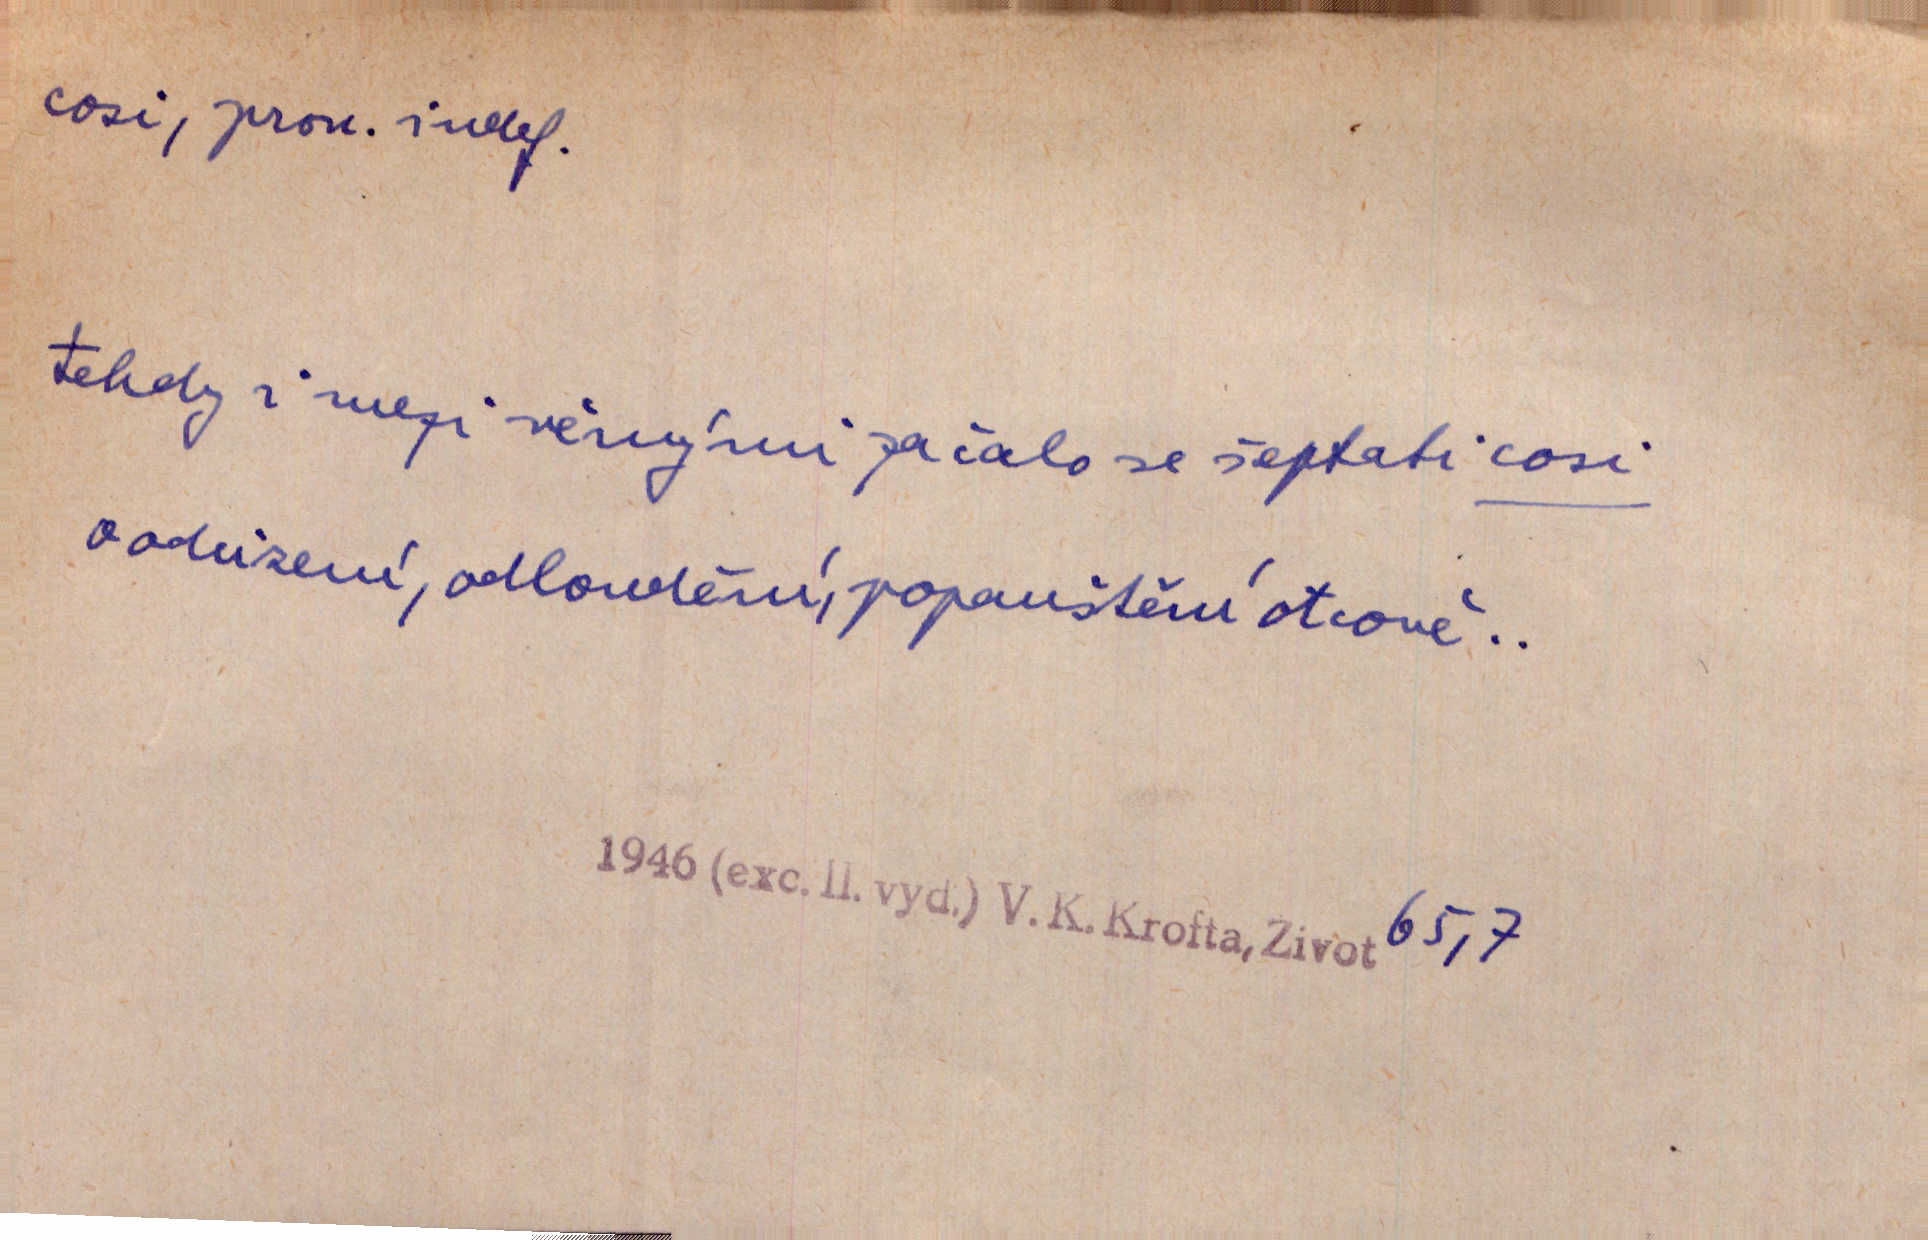 cosi, pron. indef.
tehdy i mezi věrnými začalo se šeptati cosi
o odcizení, odloudění, popouštění otcově..
1946 (exc. II. vyd.) V. K. Krofta, Život 65,7